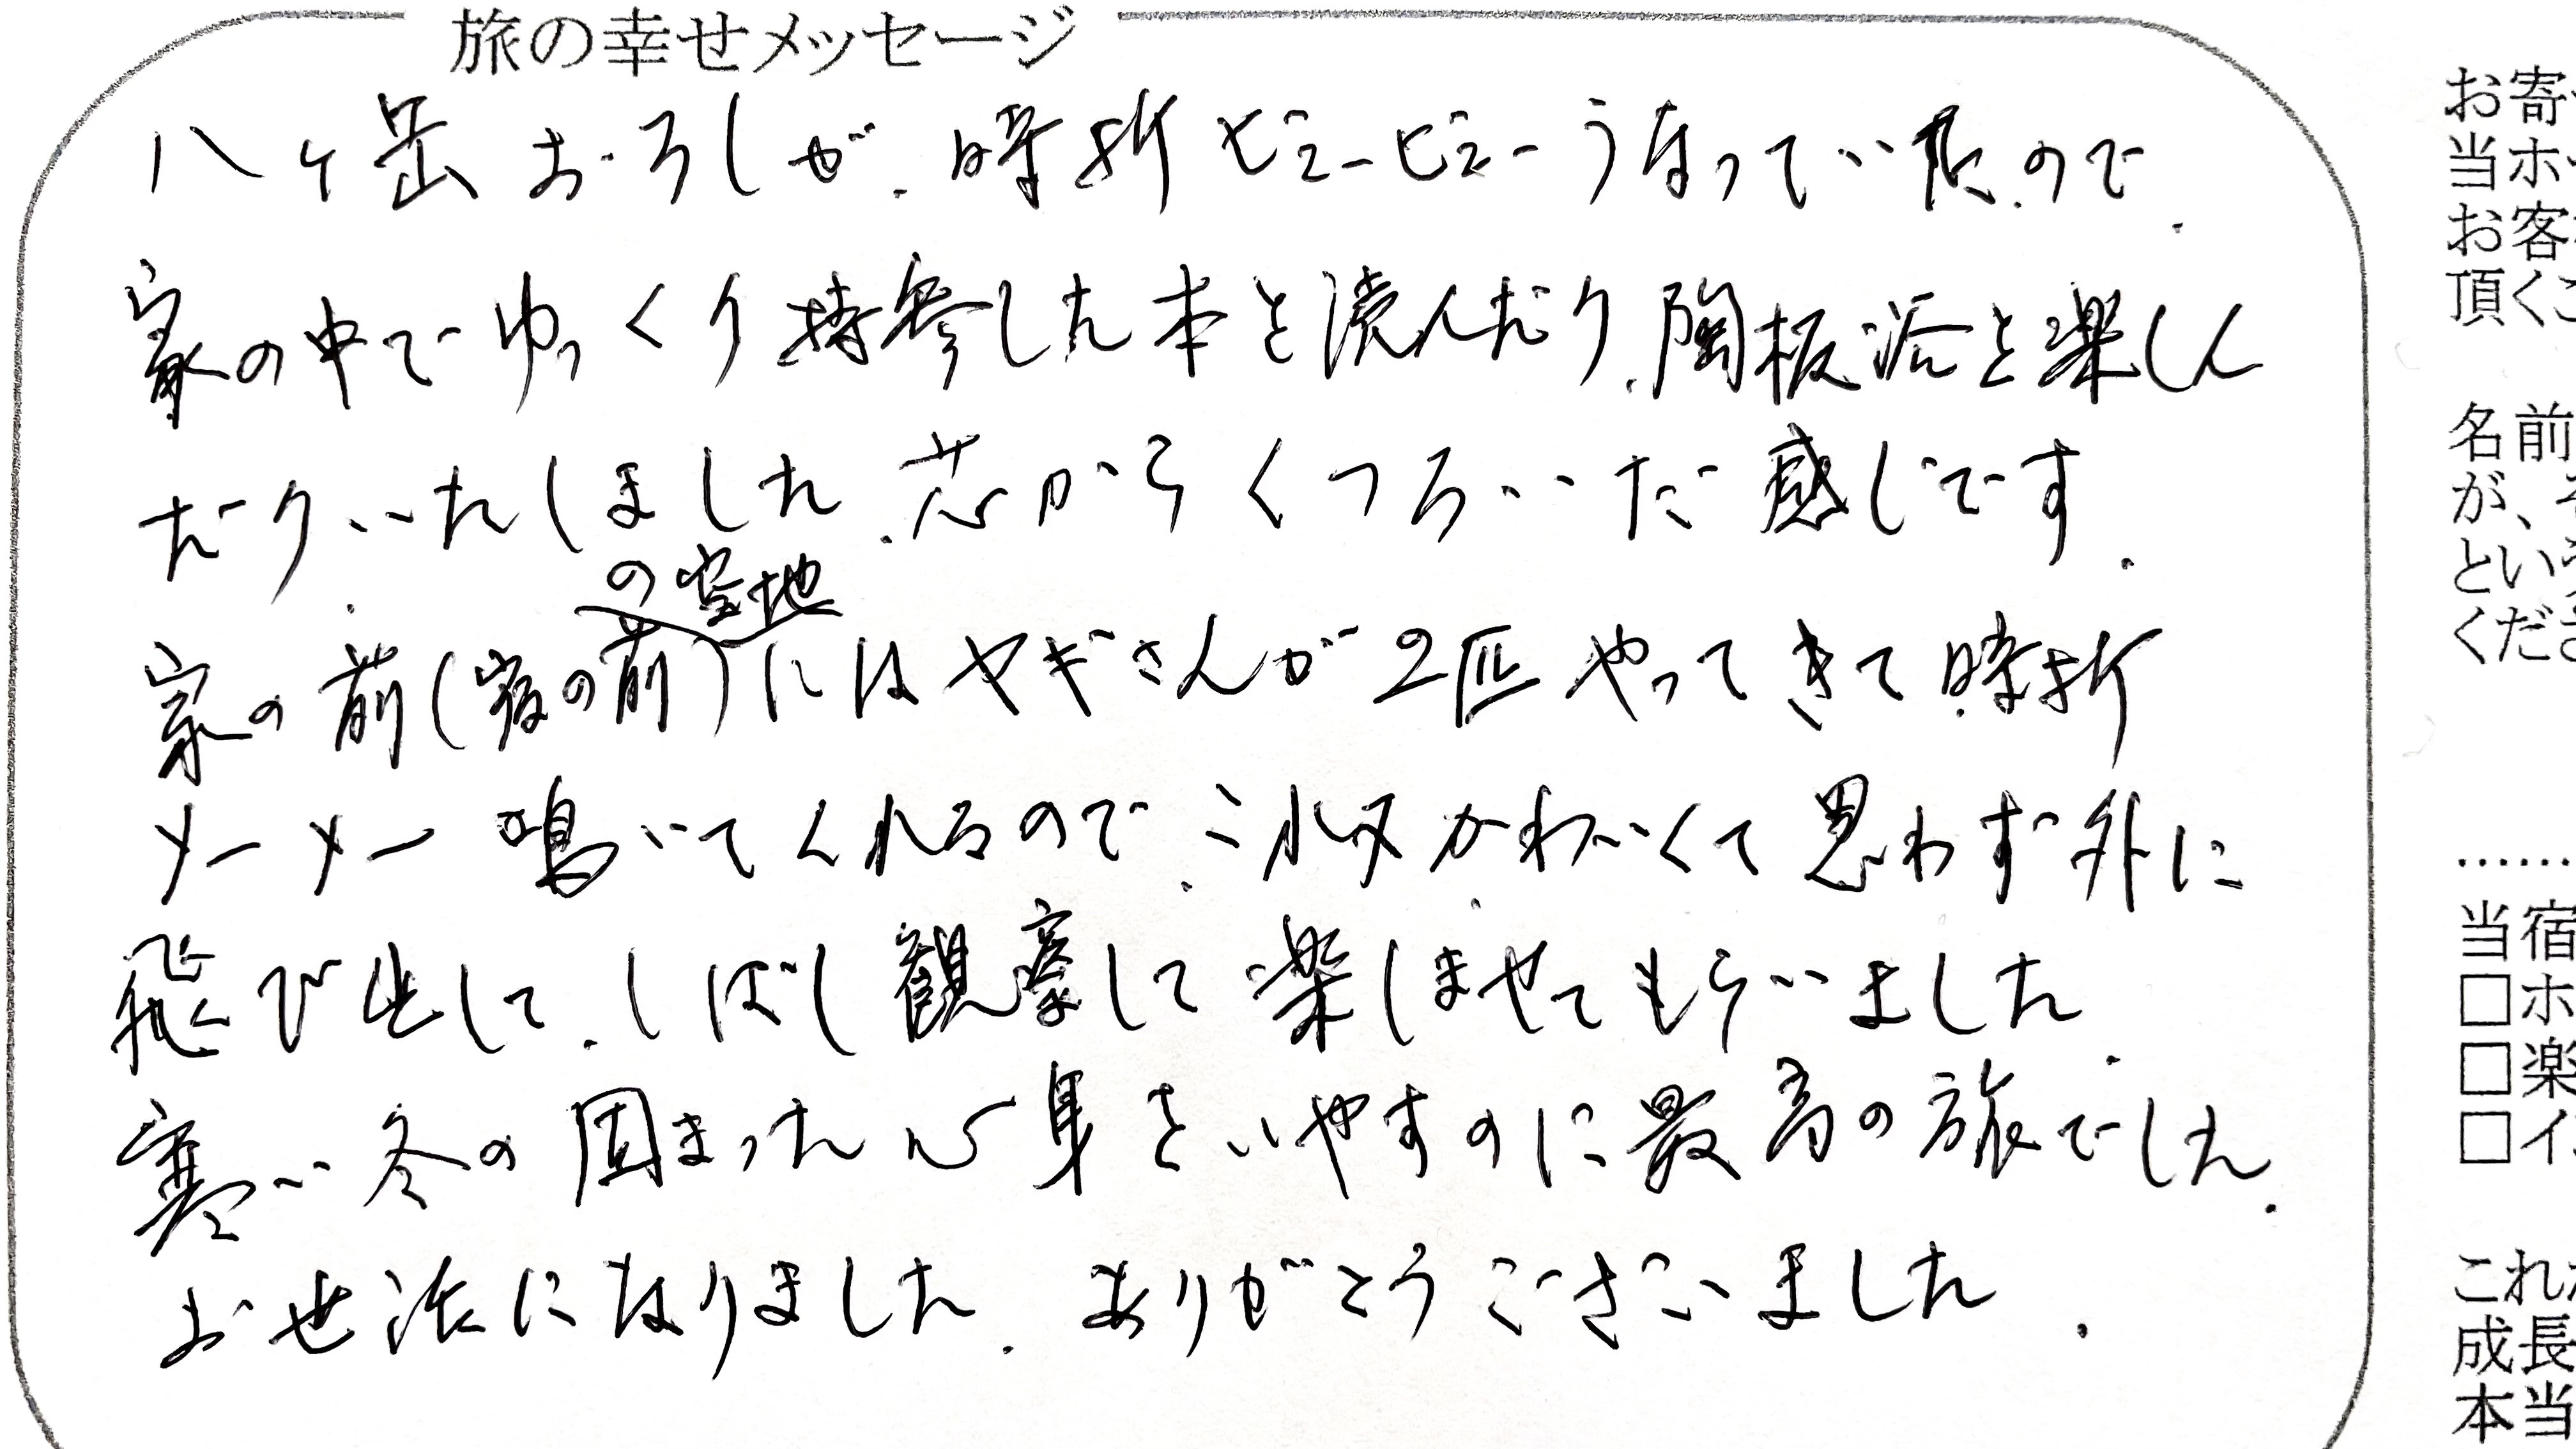 旅の幸せメッセージ
八ヶ岳おろしが、時折ビュービューうなっていたので、
家の中でゆっくり持参した本を読んだり、陶板浴を楽しん
だり、いたしました。芯からくつろいだ感じです。
の空地
家の前(宿の前)にはヤギさんが2匹やってきて、時折
メーメー鳴いてくれるので、これ又かわいくて思わず外に
飛び出して、しばし観察して楽しませてもらいました。
寒い冬の固まった心身をいやすのに最高の旅でした。
お世話になりました。ありがとうございました。
お寄
当ホ
お客
頂くこ
名前
が、そ
という
くださ
……
当宿
□ホ
□楽
□イ
これ
成長
本当